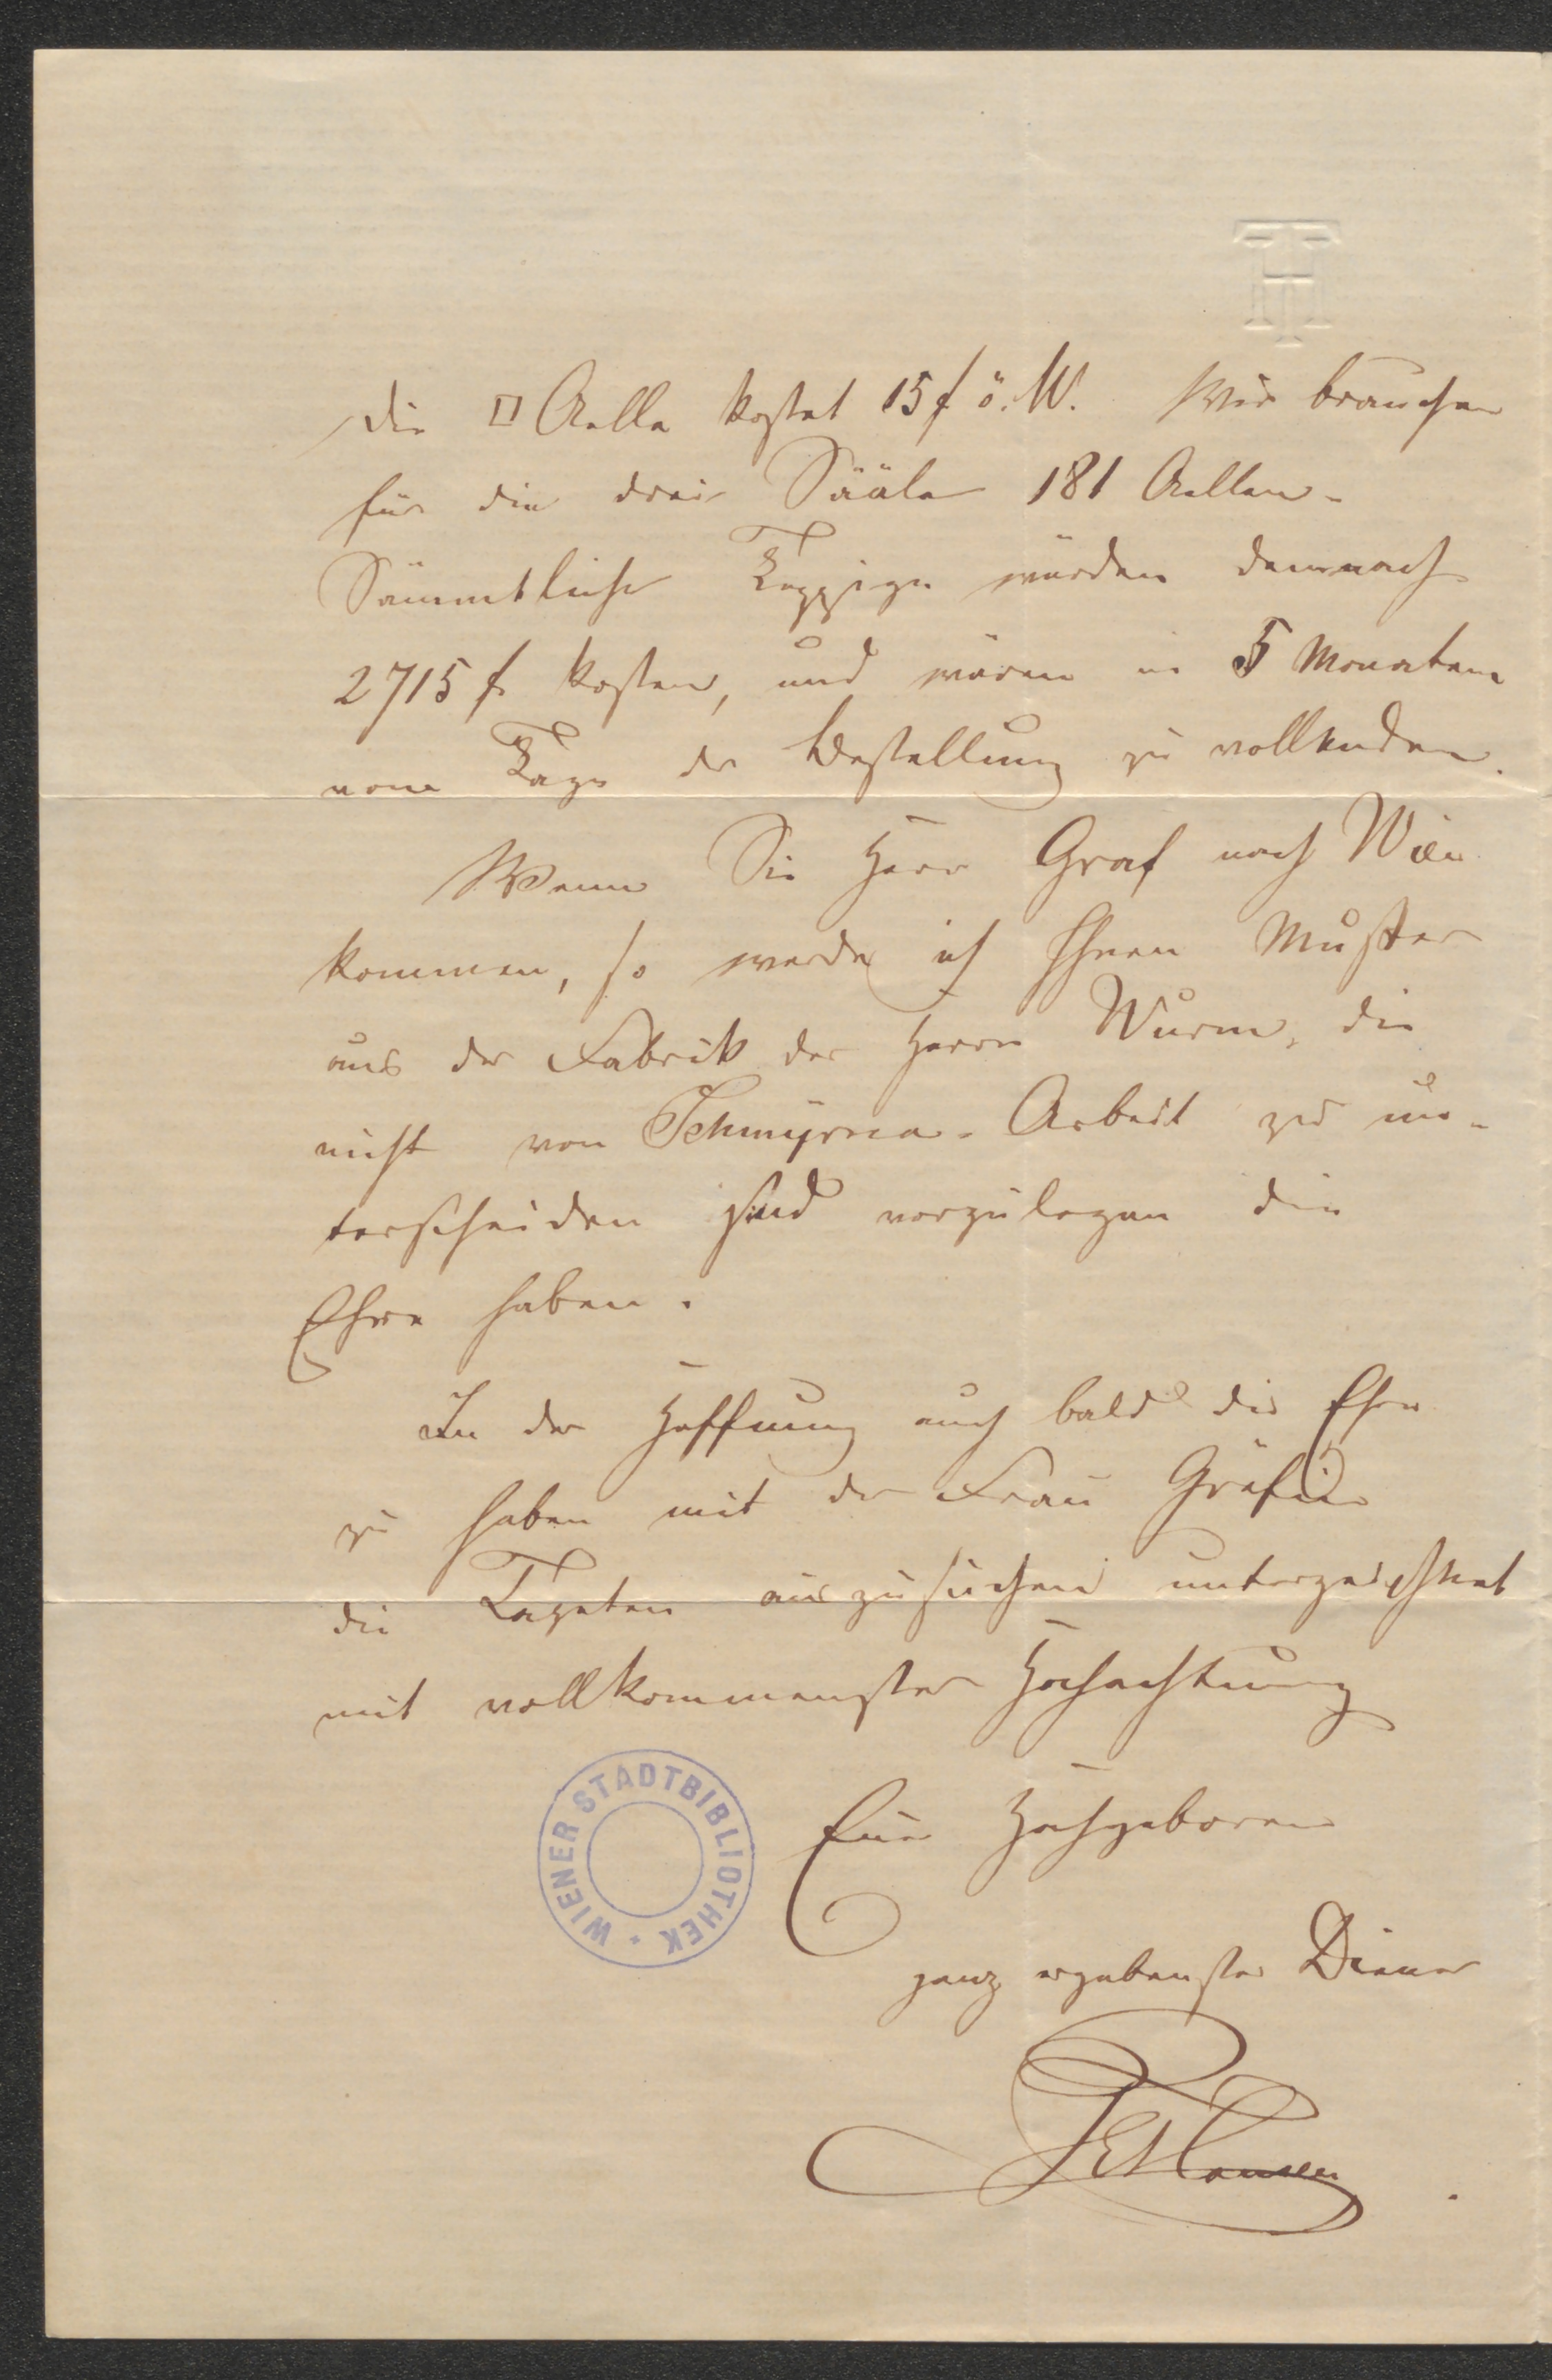 TH
Die □ Aelle kostet 15 f ö. W. Wir brauchen
für die drei Sääle 181 Aellen.
Sämmtliche Teppige würden demnach
2715 f kosten, und wären in 5 Monaten
vom Tage der Bestellung zu vollenden.
Wenn Sie Herr Graf nach Wien
kommen, so werde ich Ihnen Muster
aus der Fabrik der Herrn Wurm, die
nicht von Schmyrna-Arbeit zu un-
terscheiden sind vorzulegen die
Ehre haben.
In der Hoffnung auch bald die Ehre
zu haben mit der Frau Gräfin
die Tapeten auszusuchen unterzeichnet
mit vollkommenster Hochachtung
WIENER STADTBIBLIOTHEK *
Euer Hochgeboren
ganz ergebenster Diener
Hansen